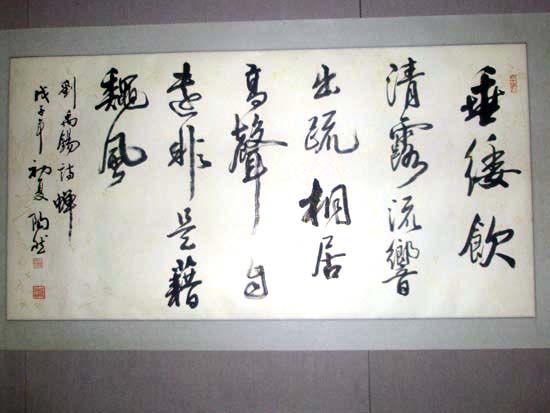 垂緌飲
清露流響
出疏桐居
高聲自
遠非是藉
龝風
劉禹錫詩蟬
戊子年初夏陶然